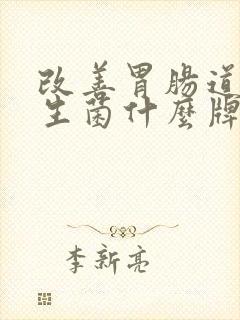 改善胃腸道
生菌什麼牌
李新亮